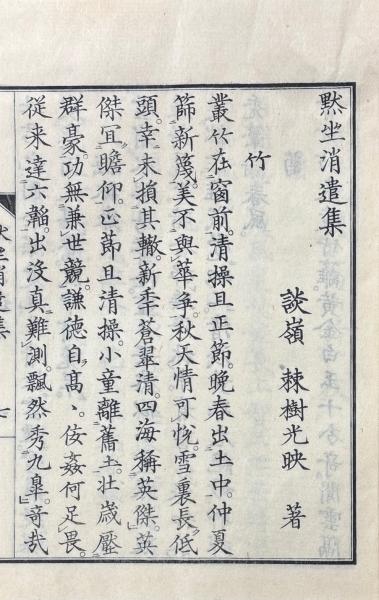 黙坐消遣集
談嶺 棘樹光映 著
竹
叢竹在窗前。清操且正節。晩春出土中。仲夏
節新篾。美不與華爭。秋天情可悅。雪裏長低
頭。幸未損其轍。新年蒼翠清。四海稱英傑。英
傑冝瞻仰。正節且清操。小童離舊土。壯歳壓
群豪。功無兼世競。謙德自髙〻。侫姦何足畏。
従来達六韜。出沒真難測。飄然秀九皐。竒哉
坐消遣集
七